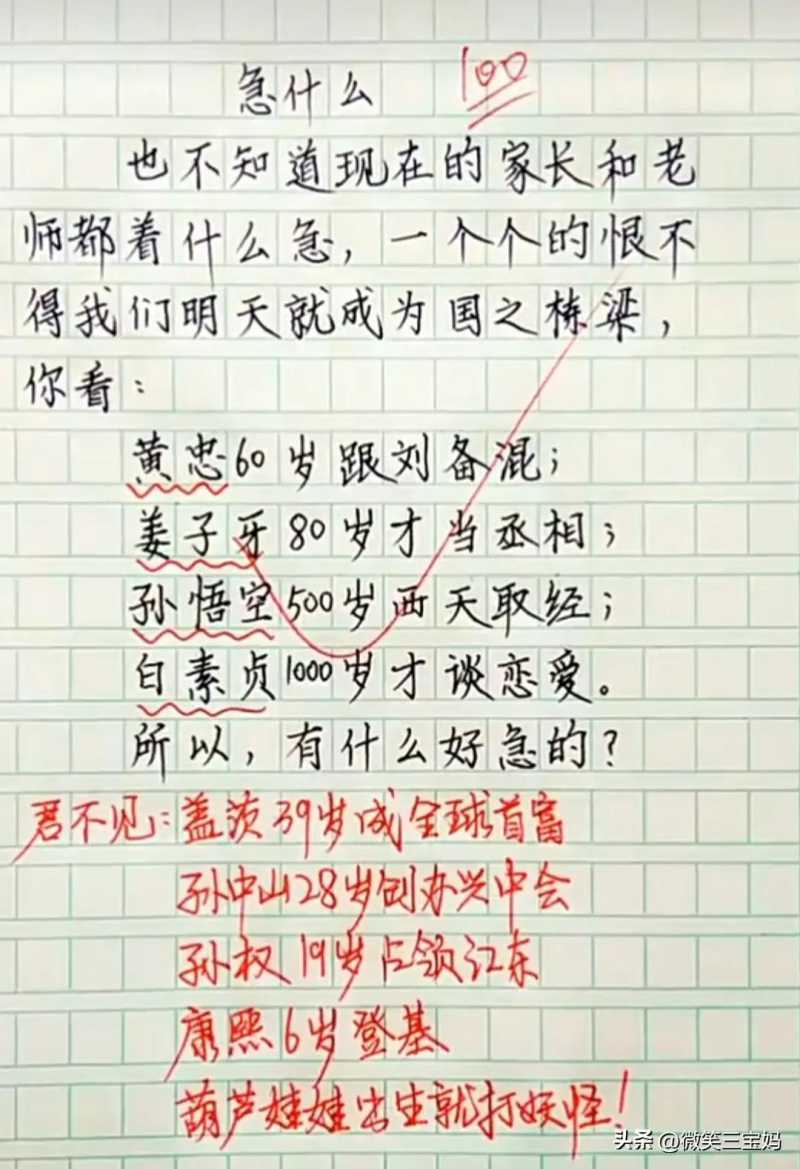 急什么 100
也不知道现在的家长和老
师都着什么急，一个个的恨不
得我们明天就成为国之栋梁，
你看：
黄忠60岁跟刘备混；
姜子牙80岁才当丞相；
孙悟空500岁西天取经；
白素贞1000岁才谈恋爱。
所以，有什么好急的？
君不见：盖茨39岁成全球首富
孙中山28岁创办兴中会
孙权19岁占领江东
康熙6岁登基
葫芦娃娃出生就打妖怪！
头条 @微笑三宝妈